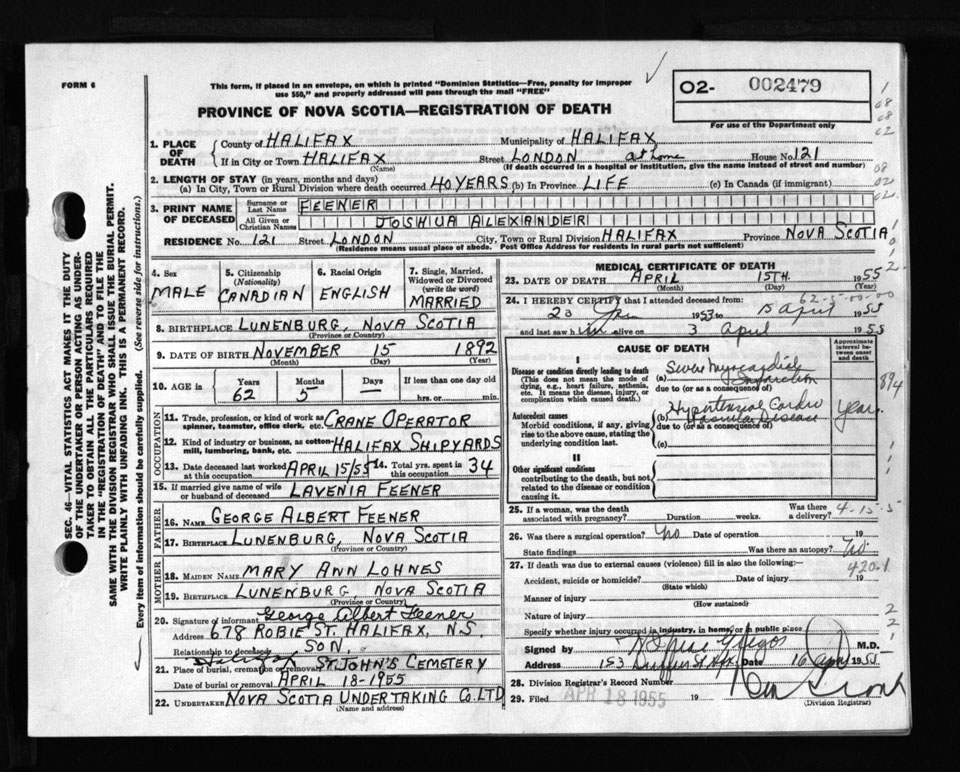 FORM 6
This form, if placed in an envelope, on which is printed "Dominion Statistics—Free, penalty for improper
use $50," and properly addressed will pass through the mail "FREE"
PROVINCE OF NOVA SCOTIA—REGISTRATION OF DEATH
O2- 002479
For use of the Department only
1. PLACE OF DEATH
County of HALIFAX Municipality of HALIFAX
If in City or Town HALIFAX Street LONDON at home House No. 121
(Name) (If death occurred in a hospital or institution, give the name instead of street and number)
2. LENGTH OF STAY (in years, months and days)
(a) In City, Town or Rural Division where death occurred 40 YEARS (b) In Province LIFE (c) In Canada (if immigrant)
3. PRINT NAME OF DECEASED
Surname or Last Name FEENER
All Given or Christian Names JOSHUA ALEXANDER
RESIDENCE No. 121 Street LONDON City, Town or Rural Division HALIFAX Province NOVA SCOTIA
(Residence means usual place of abode. Post Office Address for residents in rural parts not sufficient)
4. Sex MALE
5. Citizenship (Nationality) CANADIAN
6. Racial Origin ENGLISH
7. Single, Married, Widowed or Divorced (write the word) MARRIED
8. BIRTHPLACE LUNENBURG, NOVA SCOTIA
(Province or Country)
9. DATE OF BIRTH NOVEMBER 15 1892
(Month) (Day) (Year)
10. AGE in Years Months Days If less than one day
62 5 — hrs. or min.
OCCUPATION
11. Trade, profession, or kind of work as spinner, teamster, office clerk, etc. CRANE OPERATOR
12. Kind of industry or business, as cotton-mill, lumbering, bank, etc. HALIFAX SHIPYARDS
13. Date deceased last worked at this occupation APRIL 15/55 14. Total yrs. spent in this occupation 34
15. If married give name of wife or husband of deceased LAVENIA FEENER
FATHER
16. NAME GEORGE ALBERT FEENER
17. BIRTHPLACE LUNENBURG, NOVA SCOTIA
(Province or Country)
MOTHER
18. MAIDEN NAME MARY ANN LOHNES
19. BIRTHPLACE LUNENBURG, NOVA SCOTIA
(Province or Country)
20. Signature of informant George Albert Feener
Address 678 ROBIE ST. HALIFAX, N.S.
Relationship to deceased SON.
21. Place of burial, cremation or removal Halifax ST. JOHN'S CEMETERY
Date of burial or removal APRIL 18-1955
22. UNDERTAKER NOVA SCOTIA UNDERTAKING CO. LTD
(Name and address)
MEDICAL CERTIFICATE OF DEATH
23. DATE OF DEATH APRIL 15TH. 1955
(Month) (Day) (Year)
24. I HEREBY CERTIFY that I attended deceased from:
23 1953 to 15 april 1955
and last saw him alive on 3 april 1955
CAUSE OF DEATH
Approximate interval between onset and death
I
Disease or condition directly leading to death
(This does not mean the mode of dying, e.g., heart failure, asthenia, etc. It means the disease, injury, or complication which caused death.)
(a) Severe Myocardial Infarction
due to (or as a consequence of)
Antecedent causes
Morbid conditions, if any, giving rise to the above cause, stating the underlying condition last.
(b) Hypertensive Cardio Vascular Disease years
due to (or as a consequence of)
(c)
II
Other significant conditions
contributing to the death, but not related to the disease or condition causing it.
25. If a woman, was the death associated with pregnancy? Duration weeks. Was there a delivery?
4-15-5
26. Was there a surgical operation? No Date of operation 19
State findings Was there an autopsy? No
27. If death was due to external causes (violence) fill in also the following:—
420.1
Accident, suicide or homicide? Date of injury 19
(State which)
Manner of injury
(How sustained)
Nature of injury
Specify whether injury occurred in industry, in home, or in public place
Signed by M.D.
Address 153 Date 16 april 1955
28. Division Registrar's Record Number
29. Filed APR 18 1955 19
(Division Registrar)
SEC. 46—VITAL STATISTICS ACT MAKES IT THE DUTY
OF THE UNDERTAKER OR PERSON ACTING AS UNDER-
TAKER TO OBTAIN ALL THE PARTICULARS REQUIRED
IN THE "REGISTRATION OF DEATH" AND TO FILE THE
SAME WITH THE DIVISION REGISTRAR WHO SHALL ISSUE THE BURIAL PERMIT.
WRITE PLAINLY WITH UNFADING INK. THIS IS A PERMANENT RECORD.
Every item of information should be carefully supplied. (See reverse side for instructions.)